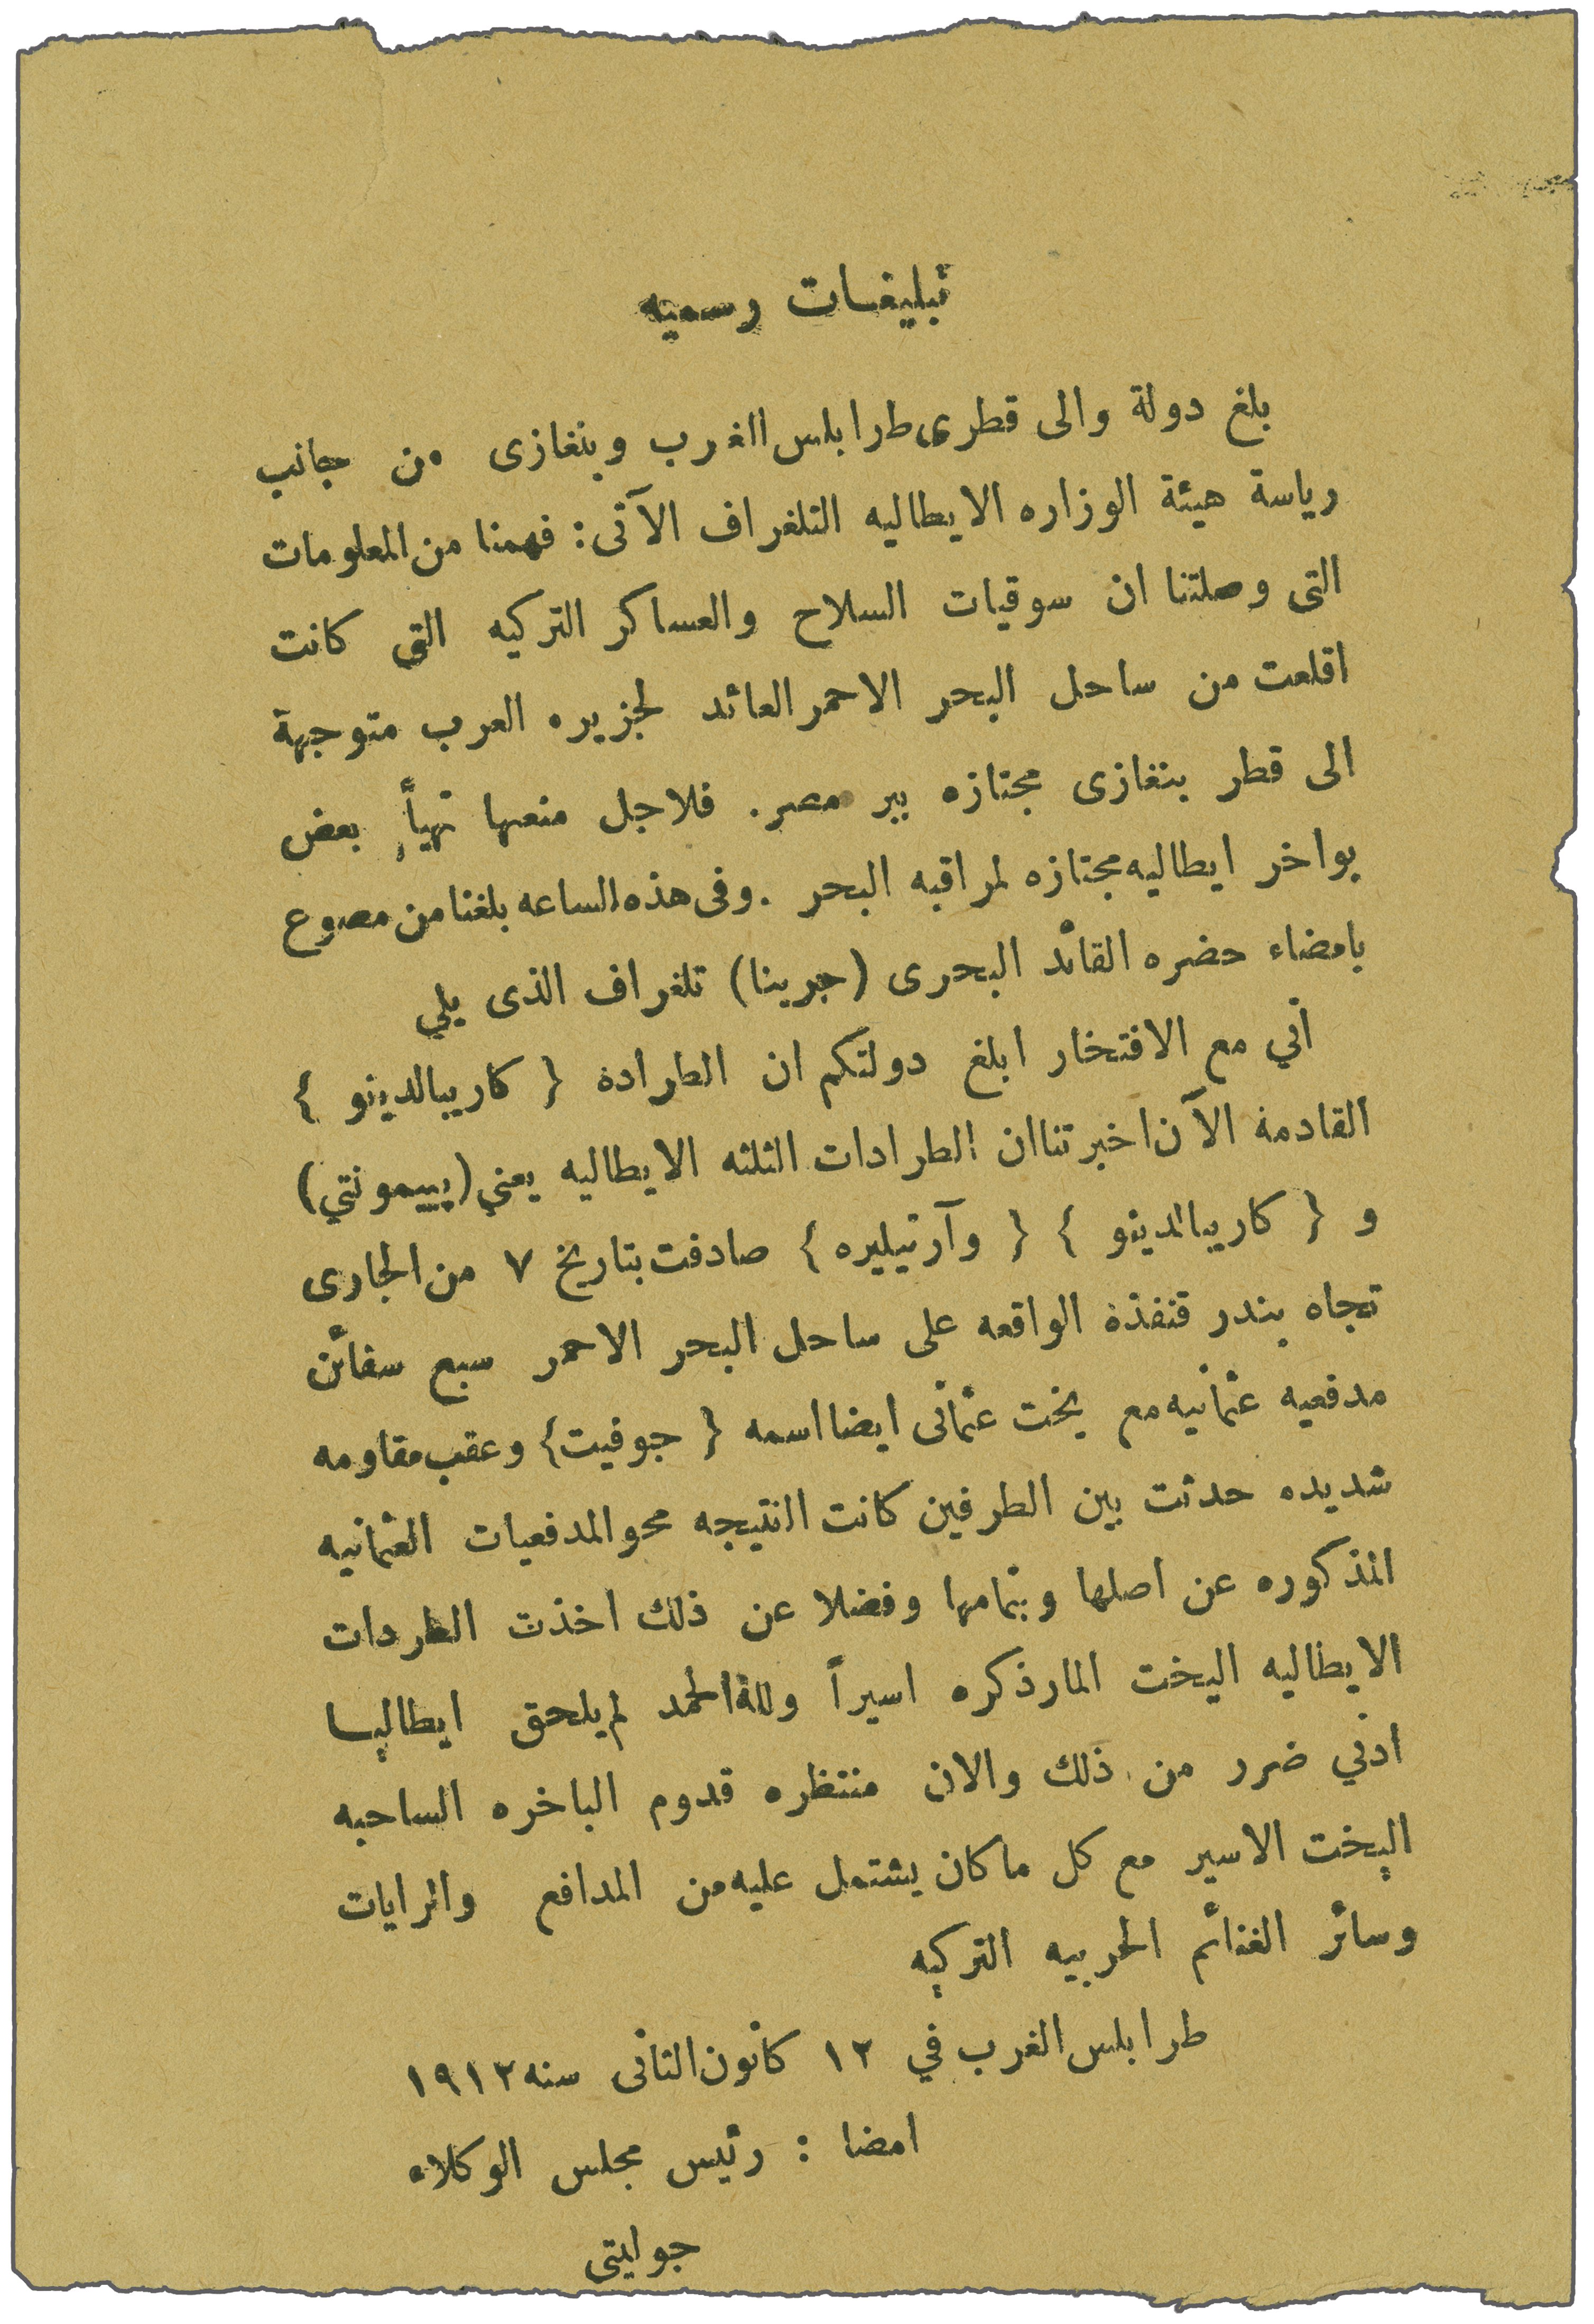 تبليغات رسميه
بلغ دولة والى قطرى طرابلس الغرب وبنغازى من جانب
رياسة هيئة الوزاره الايطاليه التلغراف الآتى: فهمنا من المعلومات
التى وصلتنا ان سوقيات السلاح والعساكر التركيه التى كانت
اقلعت من ساحل البحر الاحمر العائد لجزيره العرب متوجهة
الى قطر بنغازى مجتازه ببر مصر. فلاجل منعها تهيأ بعض
بواخر ايطاليه مجتازه لمراقبه البحر. وفى هذه الساعه بلغنا من مصوع
بامضاء حضره القائد البحرى (جرينا) تلغراف الذى يلي
أني مع الافتخار ابلغ دولتكم ان الطرادة { كاريبالدينو }
القادمة الآن اخبرتنا ان الطرادات الثلثه الايطاليه يعني (پييمونتي)
و { كاريبالدينو } { وآرتيليره } صادفت بتاريخ ٧ من الجارى
تجاه بندر قنفذة الواقعه على ساحل البحر الاحمر سبع سفائن
مدفعيه عثمانيه مع يخت عثمانى ايضا اسمه { جوفيت} وعقب مقاومه
شديده حدثت بين الطرفين كانت النتيجه محو المدفعيات العثمانيه
المذكوره عن اصلها وبتمامها وفضلا عن ذلك اخذت الطردات
الايطاليه اليخت المار ذكره اسيراً ولله الحمد لم يلحق ايطاليا
ادني ضرر من ذلك والان منتظره قدوم الباخره الساحبه
اليخت الاسير مع كل ما كان يشتمل عليه من المدافع والرايات
وسائر الغنائم الحربيه التركيه
طرابلس الغرب في ١٢ كانون الثانى سنه ١٩١٢
امضا : رئيس مجلس الوكلاء
جوليتى